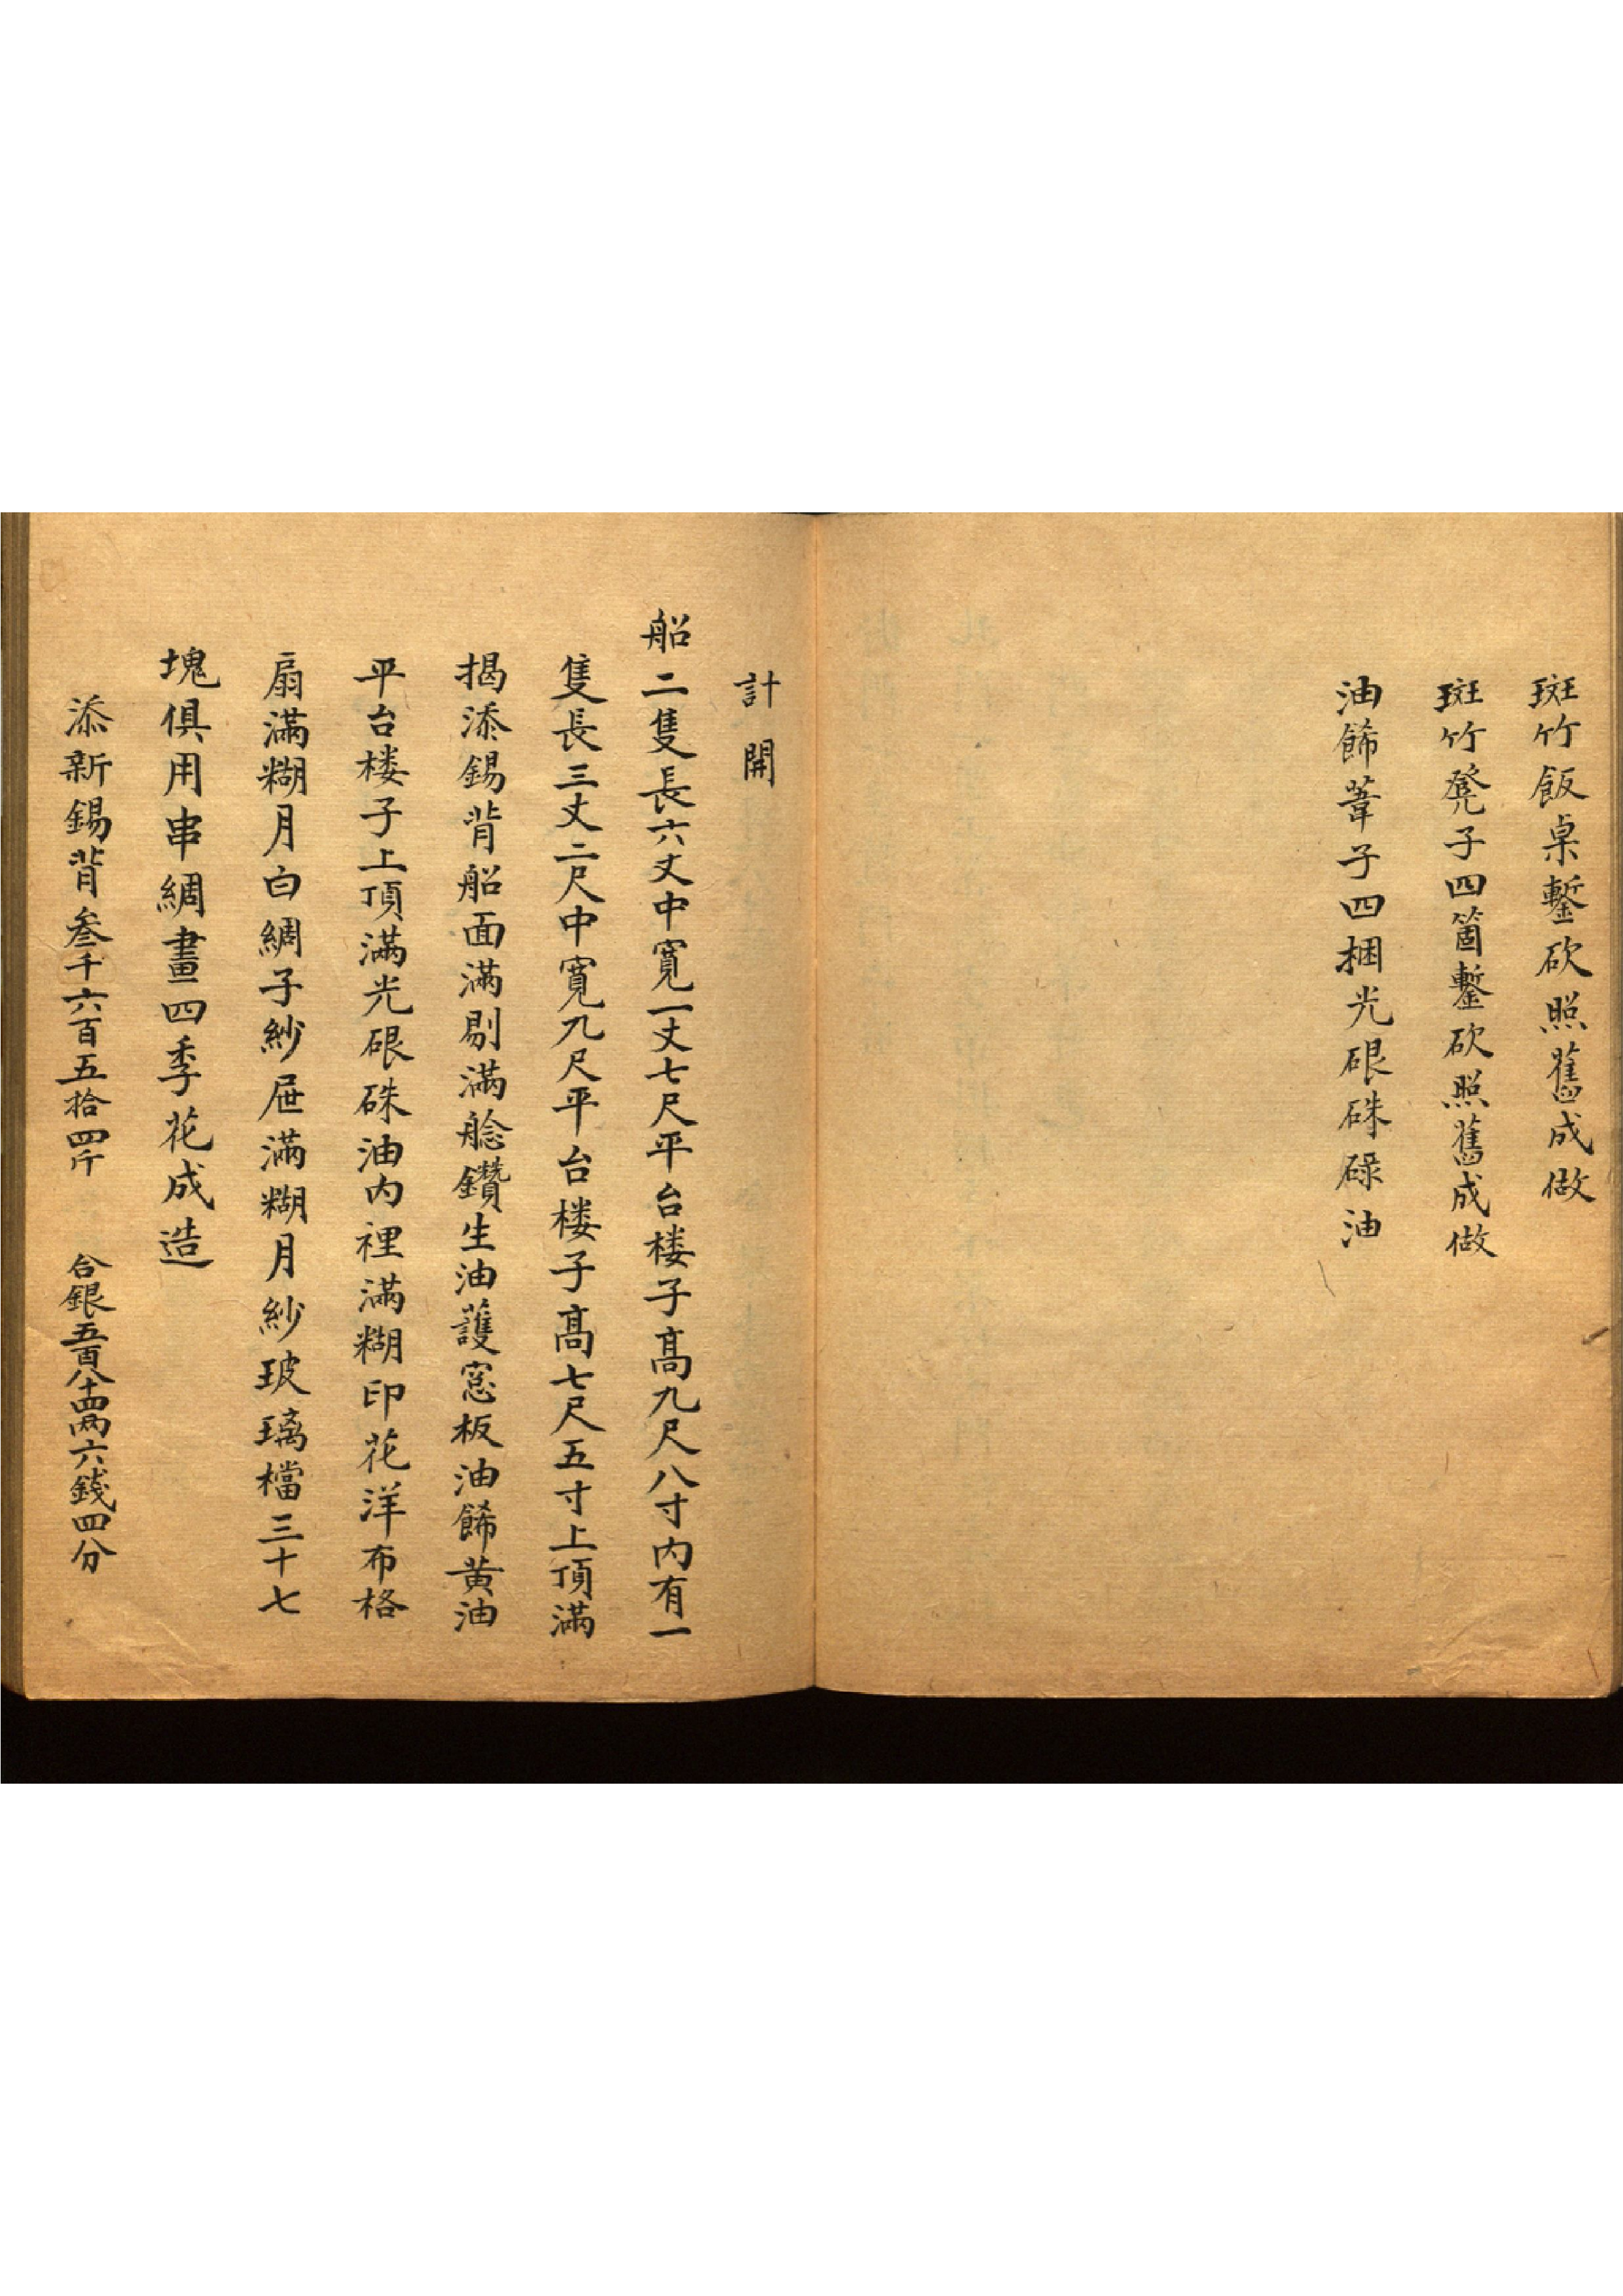 斑竹飯桌鏨砍照舊成做
斑竹凳子四箇鏨砍照舊成做
油餙葦子四捆光硍硃碌油
計開
船二隻長六丈中寛一丈七尺平台楼子髙九尺八寸内有一
隻長三丈二尺中寛九尺平台楼子髙七尺五寸上頂滿
揭添錫背船面滿剔滿艌鑽生油護窓板油餙黃油
平台楼子上頂滿光硍硃油内裡滿糊印花洋布格
扇滿糊月白綢子紗屉滿糊月紗玻璃檔三十七
塊俱用串綢畫四季花成造
添新錫背叁千六百五拾四斤 合銀五百八十四两六錢四分